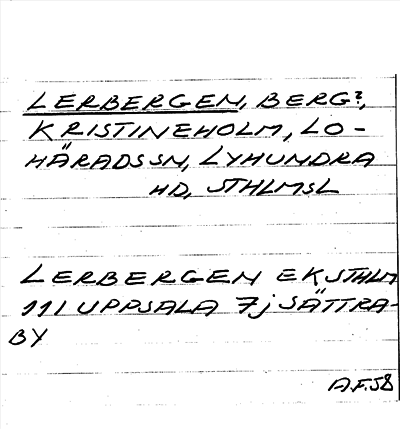 LERBERGEN, BERG?,
KRISTINEHOLM, LO-
HÄRADSSN, LYHUNDRA
HD, STHLMSL
LERBERGEN EKSTHLM
111 UPPSALA 7j SÄTTRA-
BY
A.F.58